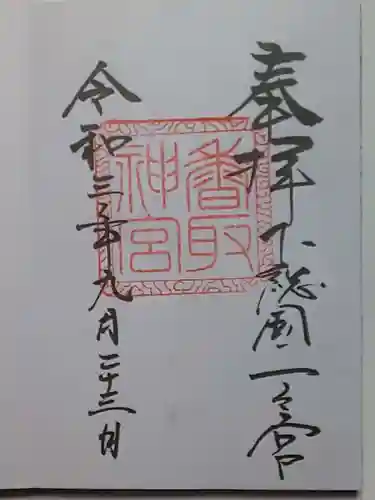 奉拝
下総国一之宮
香取
神宮
令和三年九月二十三日